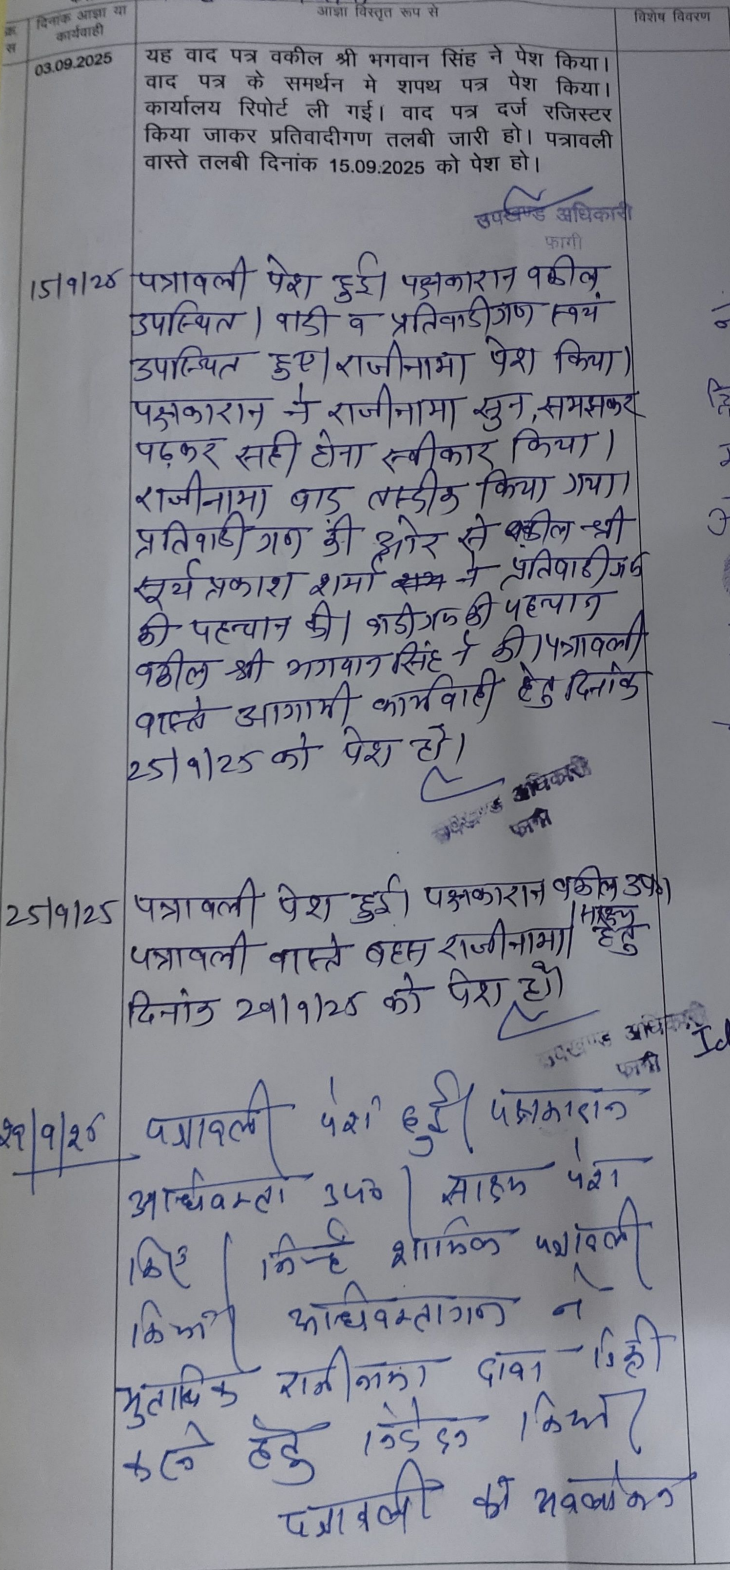 क्र स
दिनांक आज्ञा या कार्यवाही
आज्ञा विस्तृत रूप से
विशेष विवरण
03.09.2025
यह वाद पत्र वकील श्री भगवान सिंह ने पेश किया।
वाद पत्र के समर्थन मे शपथ पत्र पेश किया।
कार्यालय रिपोर्ट ली गई। वाद पत्र दर्ज रजिस्टर
किया जाकर प्रतिवादीगण तलबी जारी हो। पत्रावली
वास्ते तलबी दिनांक 15.09.2025 को पेश हो।
उपखण्ड अधिकारी
फागी
15/9/25 पत्रावली पेश हुई। पक्षकारान वकील
उपस्थित। वादी व प्रतिवादीगण स्वयं
उपस्थित हुए। राजीनामा पेश किया।
पक्षकारान ने राजीनामा सुन, समझकर
पढ़कर सही होना स्वीकार किया।
राजीनामा बाद तस्दीक किया गया।
प्रतिवादीगण की ओर से वकील श्री
सूर्य प्रकाश शर्मा ने प्रतिवादीगण
की पहचान की। वादीगण की पहचान
वकील श्री भगवान सिंह ने की। पत्रावली
वास्ते आगामी कार्यवाही हेतु दिनांक
25/9/25 को पेश हो।
उपखण्ड अधिकारी
फागी
25/9/25 पत्रावली पेश हुई। पक्षकारान वकील उप०।
पत्रावली वास्ते बहस राजीनामा/साक्ष्य हेतु
दिनांक 29/9/25 को पेश हो।
उपखण्ड अधिकारी
फागी
29/9/25 पत्रावली पेश हुई। पक्षकारान
अधिवक्ता उप०। साक्ष्य पेश
किए। जिन्हें शामिल पत्रावली
किया। अधिवक्तागण ने
मुताबिक राजीनामा दावा डिक्री
करने हेतु निवेदन किया।
पत्रावली का अवलोकन